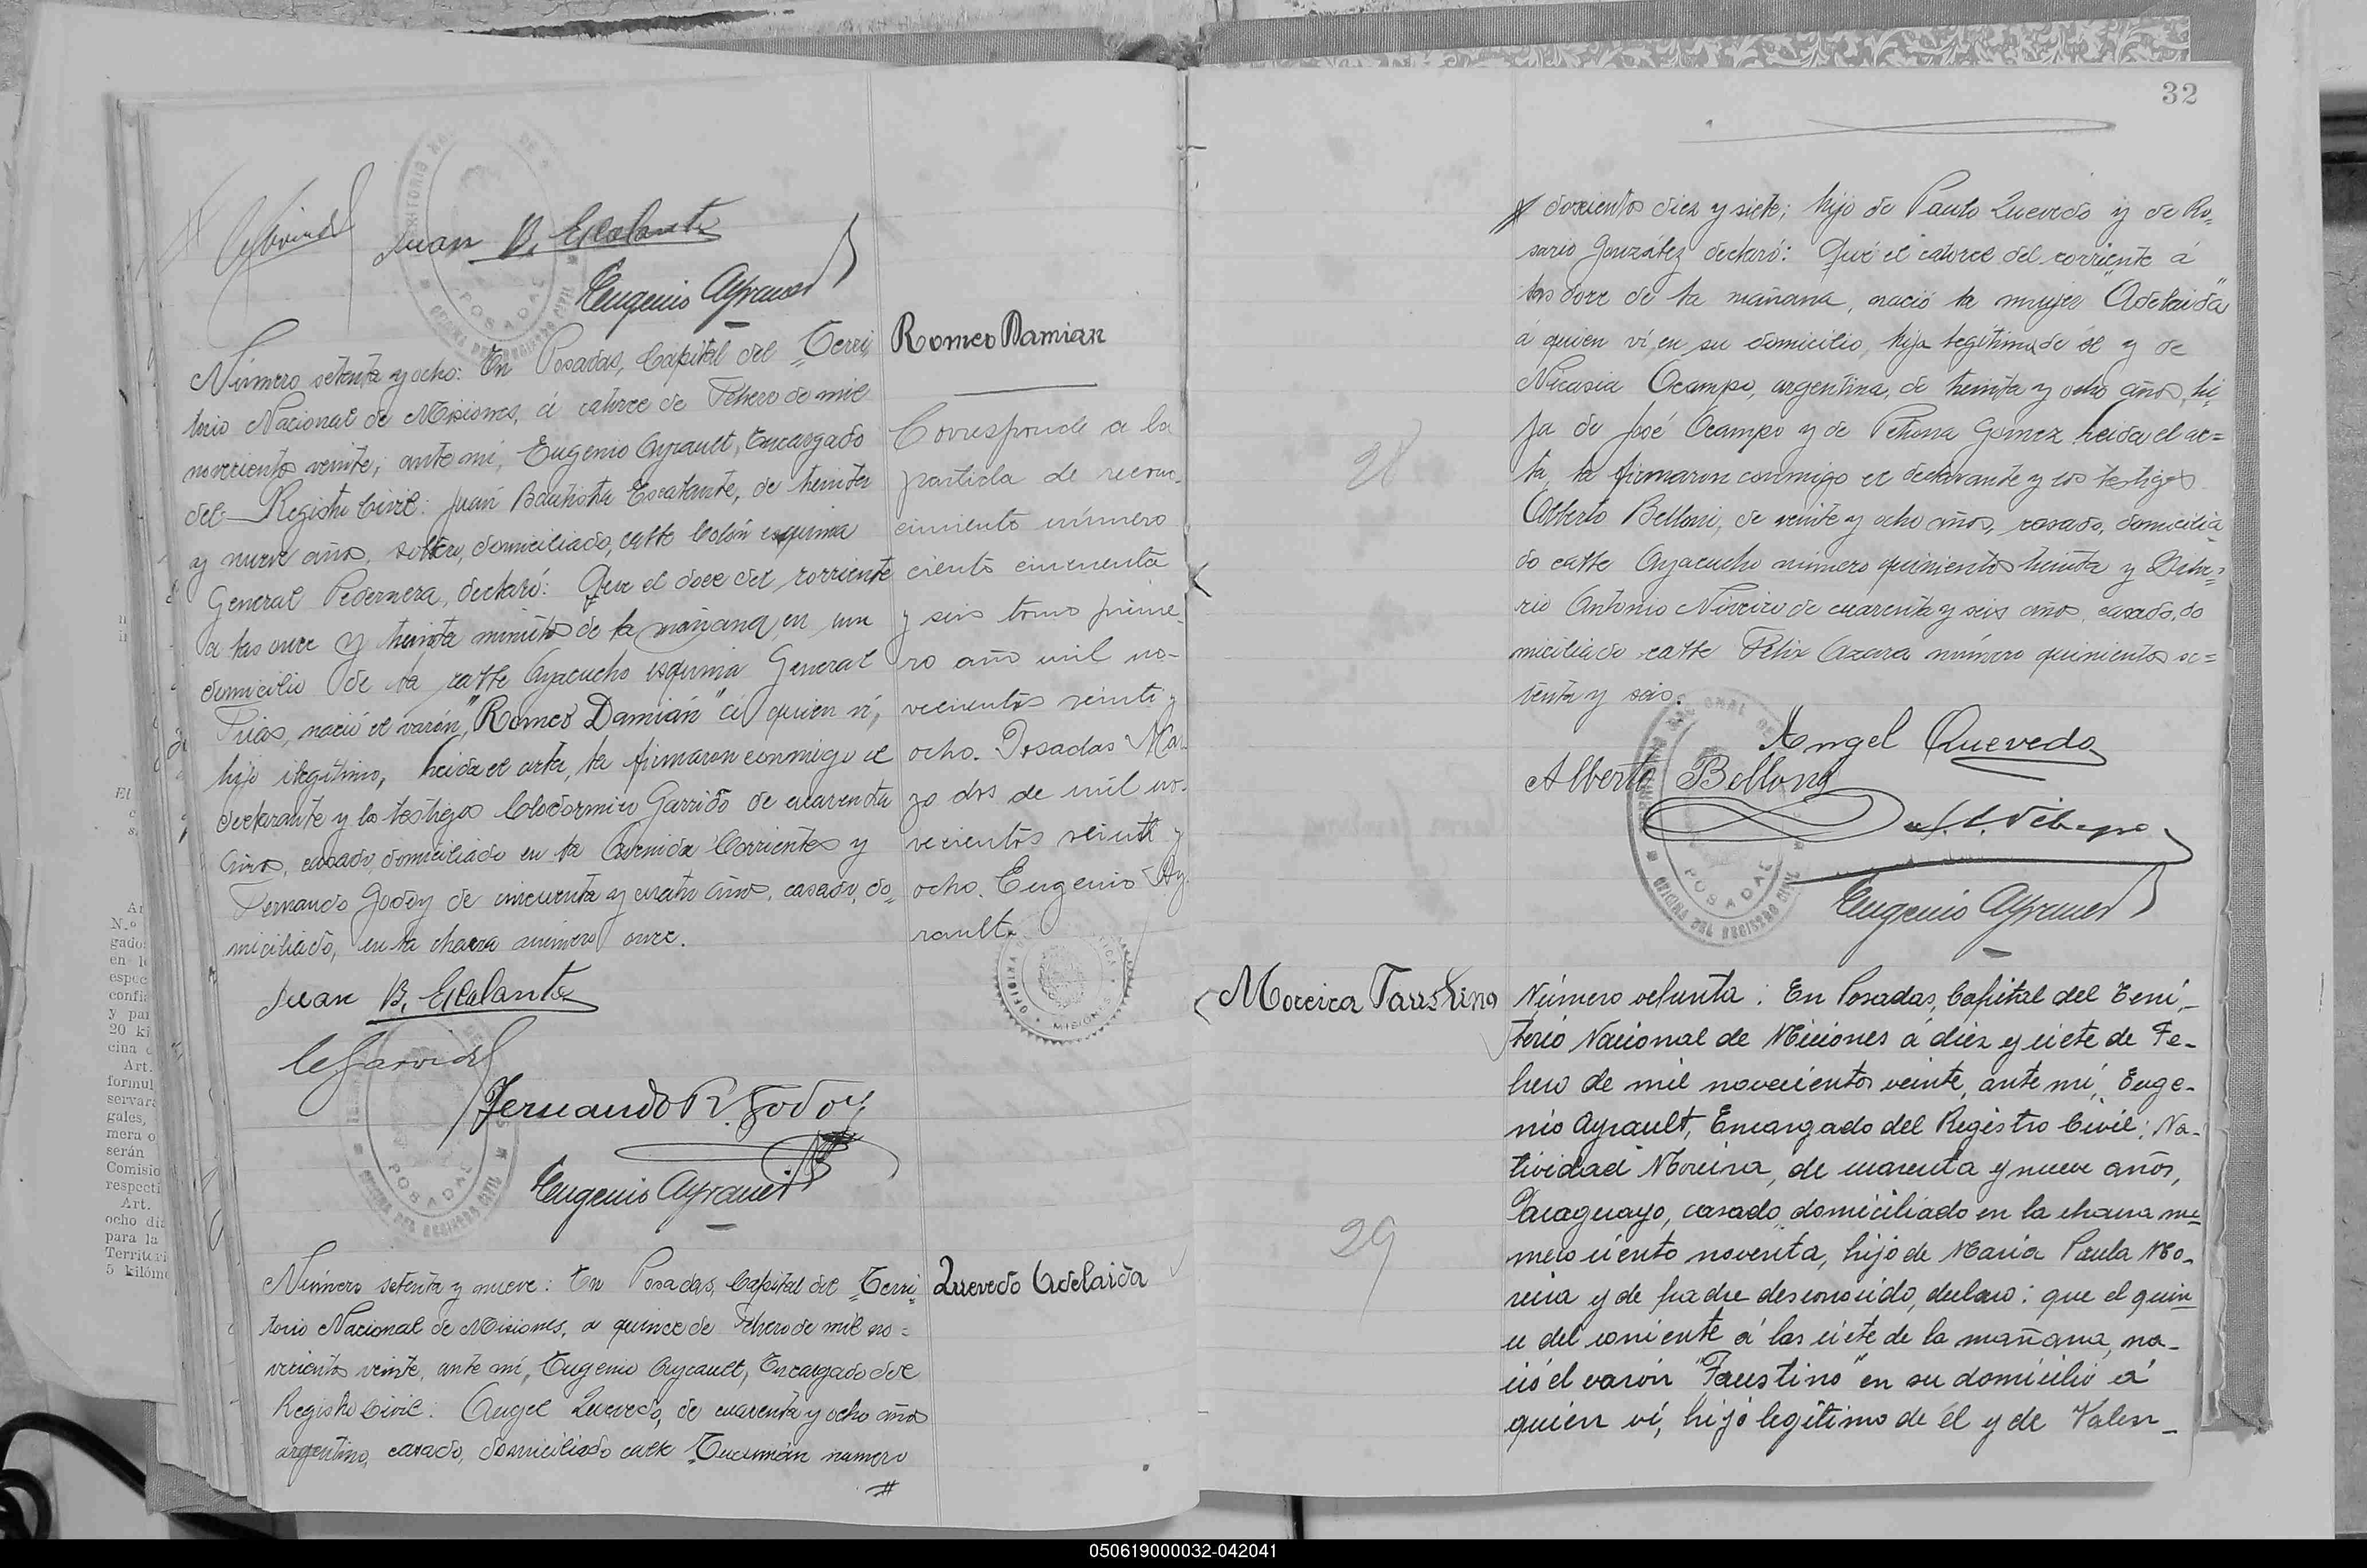 Juan B. Escalante
Eugenio Ayrault
Número setenta y ocho: En Posadas, Capital del Terri
torio Nacional de Misiones, á catorce de Febrero de mil
novecientos veinte, ante mí, Eugenio Ayrault, Encargado
del Registro Civil: Juan Bautista Escalante, de treinta
y nueve años, soltero, domiciliado, calle Colón esquina
General Pedernera, declaró: Que el doce del corriente
a las once y treinta minutos de la mañana, en su
domicilio de la calle Ayacucho esquina General
Frias, nació el varón, "Romeo Damián" á quien ví,
hijo ilegítimo, leida el acta, la firmaron conmigo el
declarante y los testigos Clodormiro Garrido de cuarenta
años, casado, domiciliado en la Avenida Corrientes y
Fernando Godoy de cincuenta y cuatro años, casado, do-
miciliado, en la chacra número once.
Juan B. Escalante
Fernando R. Godoy
Eugenio Ayrault
Número setenta y nueve: En Posadas, Capital del Terri-
torio Nacional de Misiones, a quince de Febrero de mil no=
vecientos veinte, ante mí, Eugenio Ayrault, Encargado del
Registro Civil: Angel Quevedo, de cuarenta y ocho años
argentino, casado, domiciliado calle Tucumán numero
#
Romeo Damian
Corresponde a la
partida de recono-
cimiento número
ciento cincuenta
y seis tomo prime-
ro año mil no-
vecientos veinte y
ocho. Posadas Mar-
zo dos de mil no-
vecientos veinte y
ocho. Eugenio Ay-
rault.
MISIONES
Quevedo Adelaida
32
# doscientos diez y siete; hijo de Paulo Quevedo y de Ro=
sario González declaró: Qué el catorce del corriente á
las doce de la mañana, nació la mujer "Adelaida"
á quien ví, en su domicilio, hija legítima de él y de
Nicasia Ocampo, argentina, de treinta y ocho años, hi-
ja de José Ocampo y de Petrona Gomez, leida el ac=
ta, la firmaron conmigo el declarante y los testigos
Alberto Belloni, de veinte y ocho años, casado, domicilia
do calle Ayacucho número quinientos treinta y
Antonio de cuarenta y seis años, casado, do
miciliado calle Felix Azara número quinientos se=
tenta y seis.
28
Angel Quevedo
Alberto Belloni
POSADAS
OFICINA DEL REGISTRO CIVIL
Eugenio Ayrault
Moreira Faustino
29
Número ochenta: En Posadas, Capital del Terri-
torio Nacional de Misiones á diez y siete de Fe-
brero de mil novecientos veinte, ante mí, Euge-
nio Ayrault, Encargado del Registro Civil: Na-
tividad Moreira, de cuarenta y nueve años,
Paraguayo, casado, domiciliado en la chacra nú-
mero ciento noventa, hijo de María Paula Mo-
reira y de padre desconocido, declaro: que el quin-
ce del corriente á las siete de la mañana, na-
ció el varón "Faustino" en su domicilio á
quien ví, hijo legítimo de él y de Valen-
050619000032-042041